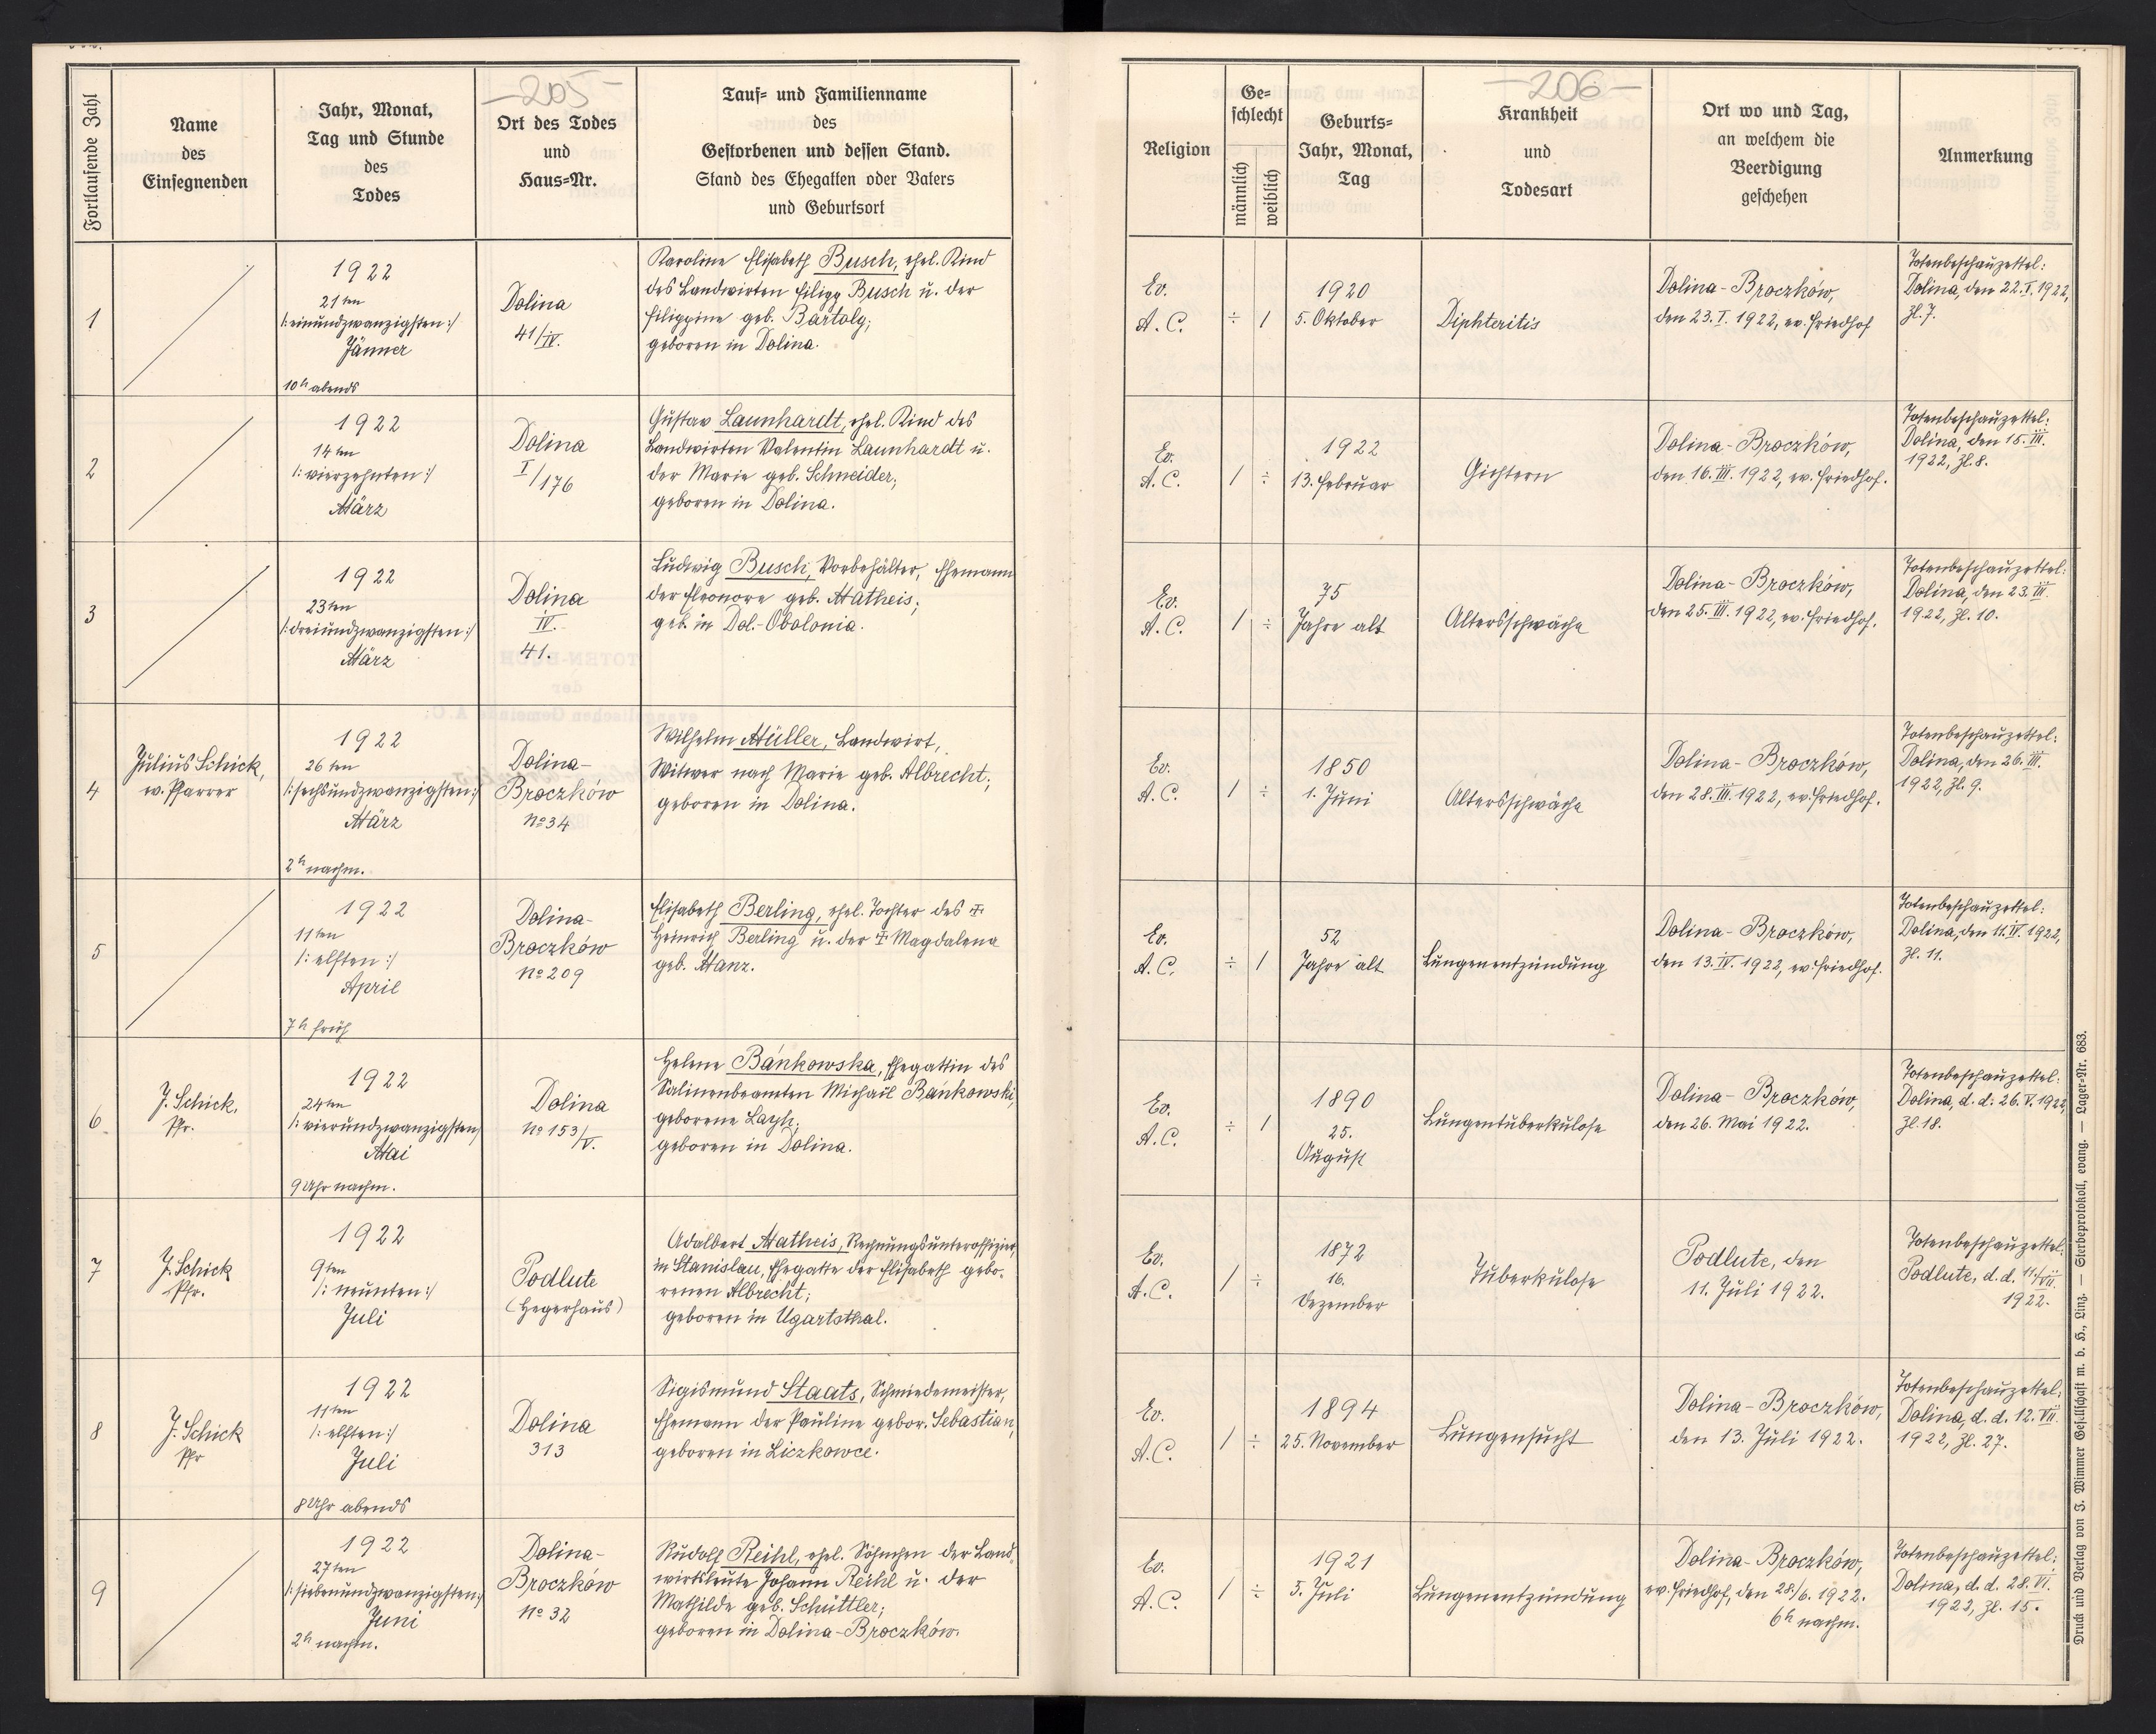 -205-
Fortlaufende Zahl
Name
des
Einsegnenden
Jahr, Monat,
Tag und Stunde
des
Todes
Ort des Todes
und
Haus-Nr.
Tauf- und Familienname
des
Gestorbenen und dessen Stand.
Stand des Ehegatten oder Vaters
und Geburtsort
-206-
Religion
Ge-
schlecht
männlich
weiblich
Geburts-
Jahr, Monat,
Tag
Krankheit
und
Todesart
Ort wo und Tag,
an welchem die
Beerdigung
geschehen
Anmerkung
1
1922
21ten
/:einundzwanzigsten:/
Jänner
10h abends
Dolina
41/IV.
Karoline Elisabeth Busch, ehel. Kind
des Landwirten Filipp Busch u. der
Filippine geb. Bartolg;
geboren in Dolina.
Ev.
A. C.
÷ 1
1920
5. Oktober
Diphteritis
Dolina-Broczków,
den 23. I. 1922, ev. Friedhof
Totenbeschauzettel:
Dolina, den 22. I. 1922,
Zl. 7.
2
1922
14ten
/:vierzehnten:/
März
Dolina
I/176
Gustav Launhardt, ehel. Kind des
Landwirten Valentin Launhardt u.
der Marie geb. Schneider;
geboren in Dolina.
Ev.
A. C.
1 ÷
1922
13. Februar
Gichtern
Dolina-Broczków,
den 16. III. 1922, ev. Friedhof.
Totenbeschauzettel:
Dolina, den 15. III.
1922, Zl. 8.
3
1922
23ten
/:dreiundzwanzigsten:/
März
Dolina
IV.
41.
Ludwig Busch, Vorbehälter, Ehemann
der Eleonore geb. Matheis;
geb. in Dol.-Obolonia.
Ev.
A. C.
1 ÷
75
Jahre alt
Altersschwäche
Dolina-Broczków,
den 25. III. 1922, ev. Friedhof.
Totenbeschauzettel:
Dolina, den 23. III.
1922, Zl. 10.
4
Julius Schick,
ev. Pfarrer
1922
26ten
/:sechsundzwanzigsten:/
März
2h nachm.
Dolina-
Broczków
No 34
Wilhelm Müller, Landwirt,
Witwer nach Marie geb. Albrecht;
geboren in Dolina.
Ev.
A. C.
1 ÷
1850
1. Juni
Altersschwäche
Dolina-Broczków,
den 28. III. 1922, ev. Friedhof.
Totenbeschauzettel:
Dolina, den 26. III.
1922, Zl. 9.
5
1922
11ten
/:elften:/
April
7h früh
Dolina-
Broczków
No 209
Elisabeth Berling, ehel. Tochter des ‡
Heinrich Berling u. der ‡ Magdalena
geb. Manz.
Ev.
A. C.
÷ 1
52
Jahre alt
Lungenentzündung
Dolina-Broczków,
den 13. IV. 1922, ev. Friedhof.
Totenbeschauzettel:
Dolina, den 11. IV. 1922,
Zl. 11.
6
J. Schick,
Pfr.
1922
24ten
/:vierundzwanzigsten/
Mai
9 Uhr nachm.
Dolina
No 153/V.
Helene Bańkowska, Ehegattin des
Salinenbeamten Michaül Bańkowski,
geborene Layh;
geboren in Dolina.
Ev.
A. C.
÷ 1
1890
25.
August
Lungentuberkulose
Dolina-Broczków,
den 26. Mai 1922.
Totenbeschauzettel:
Dolina, d. d. 26. V. 1922,
Zl. 18.
7
J. Schick
Pfr.
1922
9ten
/:neunten:/
Juli
Podlute
(Hegerhaus)
Adalbert Matheis, Rechnungsunteroffizier,
in Stanislau, Ehegatte der Elisabeth gebo-
renen Albrecht;
geboren in Ugartsthal.
Ev.
A. C.
1 ÷
1872
16.
Dezember
Tuberkulose
Podlute, den
11. Juli 1922.
Totenbeschauzettel:
Podlute, d. d. 11/VII.
1922.
8
J. Schick
Pfr
1922
11ten
/:elften:/
Juli
8 Uhr abends
Dolina
313
Sigismund Staats, Schmiedemeister,
Ehemann der Pauline gebor. Sebastian,
geboren in Liczkowce.
Ev.
A. C.
1 ÷
1894
25. November
Lungensucht
Dolina-Broczków,
den 13. Juli 1922.
Totenbeschauzettel:
Dolina, d. d. 12. VII.
1922, Zl. 27.
9
1922
27ten
/:siebenundzwanzigsten:/
Juni
2h nachm.
Dolina-
Broczków
No 32
Rudolf Reihl, ehel. Söhnchen der Land-
wirtsleute Johann Reihl u. der
Mathilde geb. Schüttler;
geboren in Dolina-Broczków.
Ev.
A. C.
1 ÷
1921
5. Juli
Lungenentzündung
Dolina-Broczków,
ev. Friedhof, den 28./6. 1922.
6h nachm.
Totenbeschauzettel:
Dolina, d. d. 28. VI.
1922, Zl. 15.
Druck und Verlag von J. Wimmer Gesellschaft m. b. H., Linz. — Sterbeprotokoll, evang. — Lager-Nr. 683.